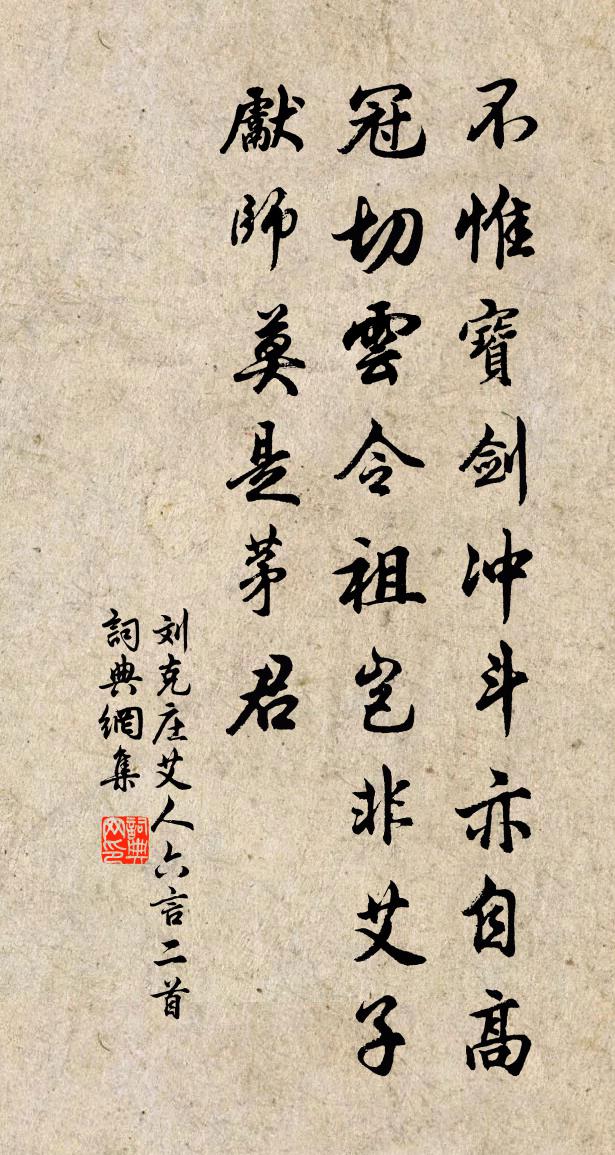 不惟寶劍冲斗亦自高
冠切雲令祖岂非艾子
獻師莫是茅君
刘克庄艾人六言二首
詞典網集
詞典网印